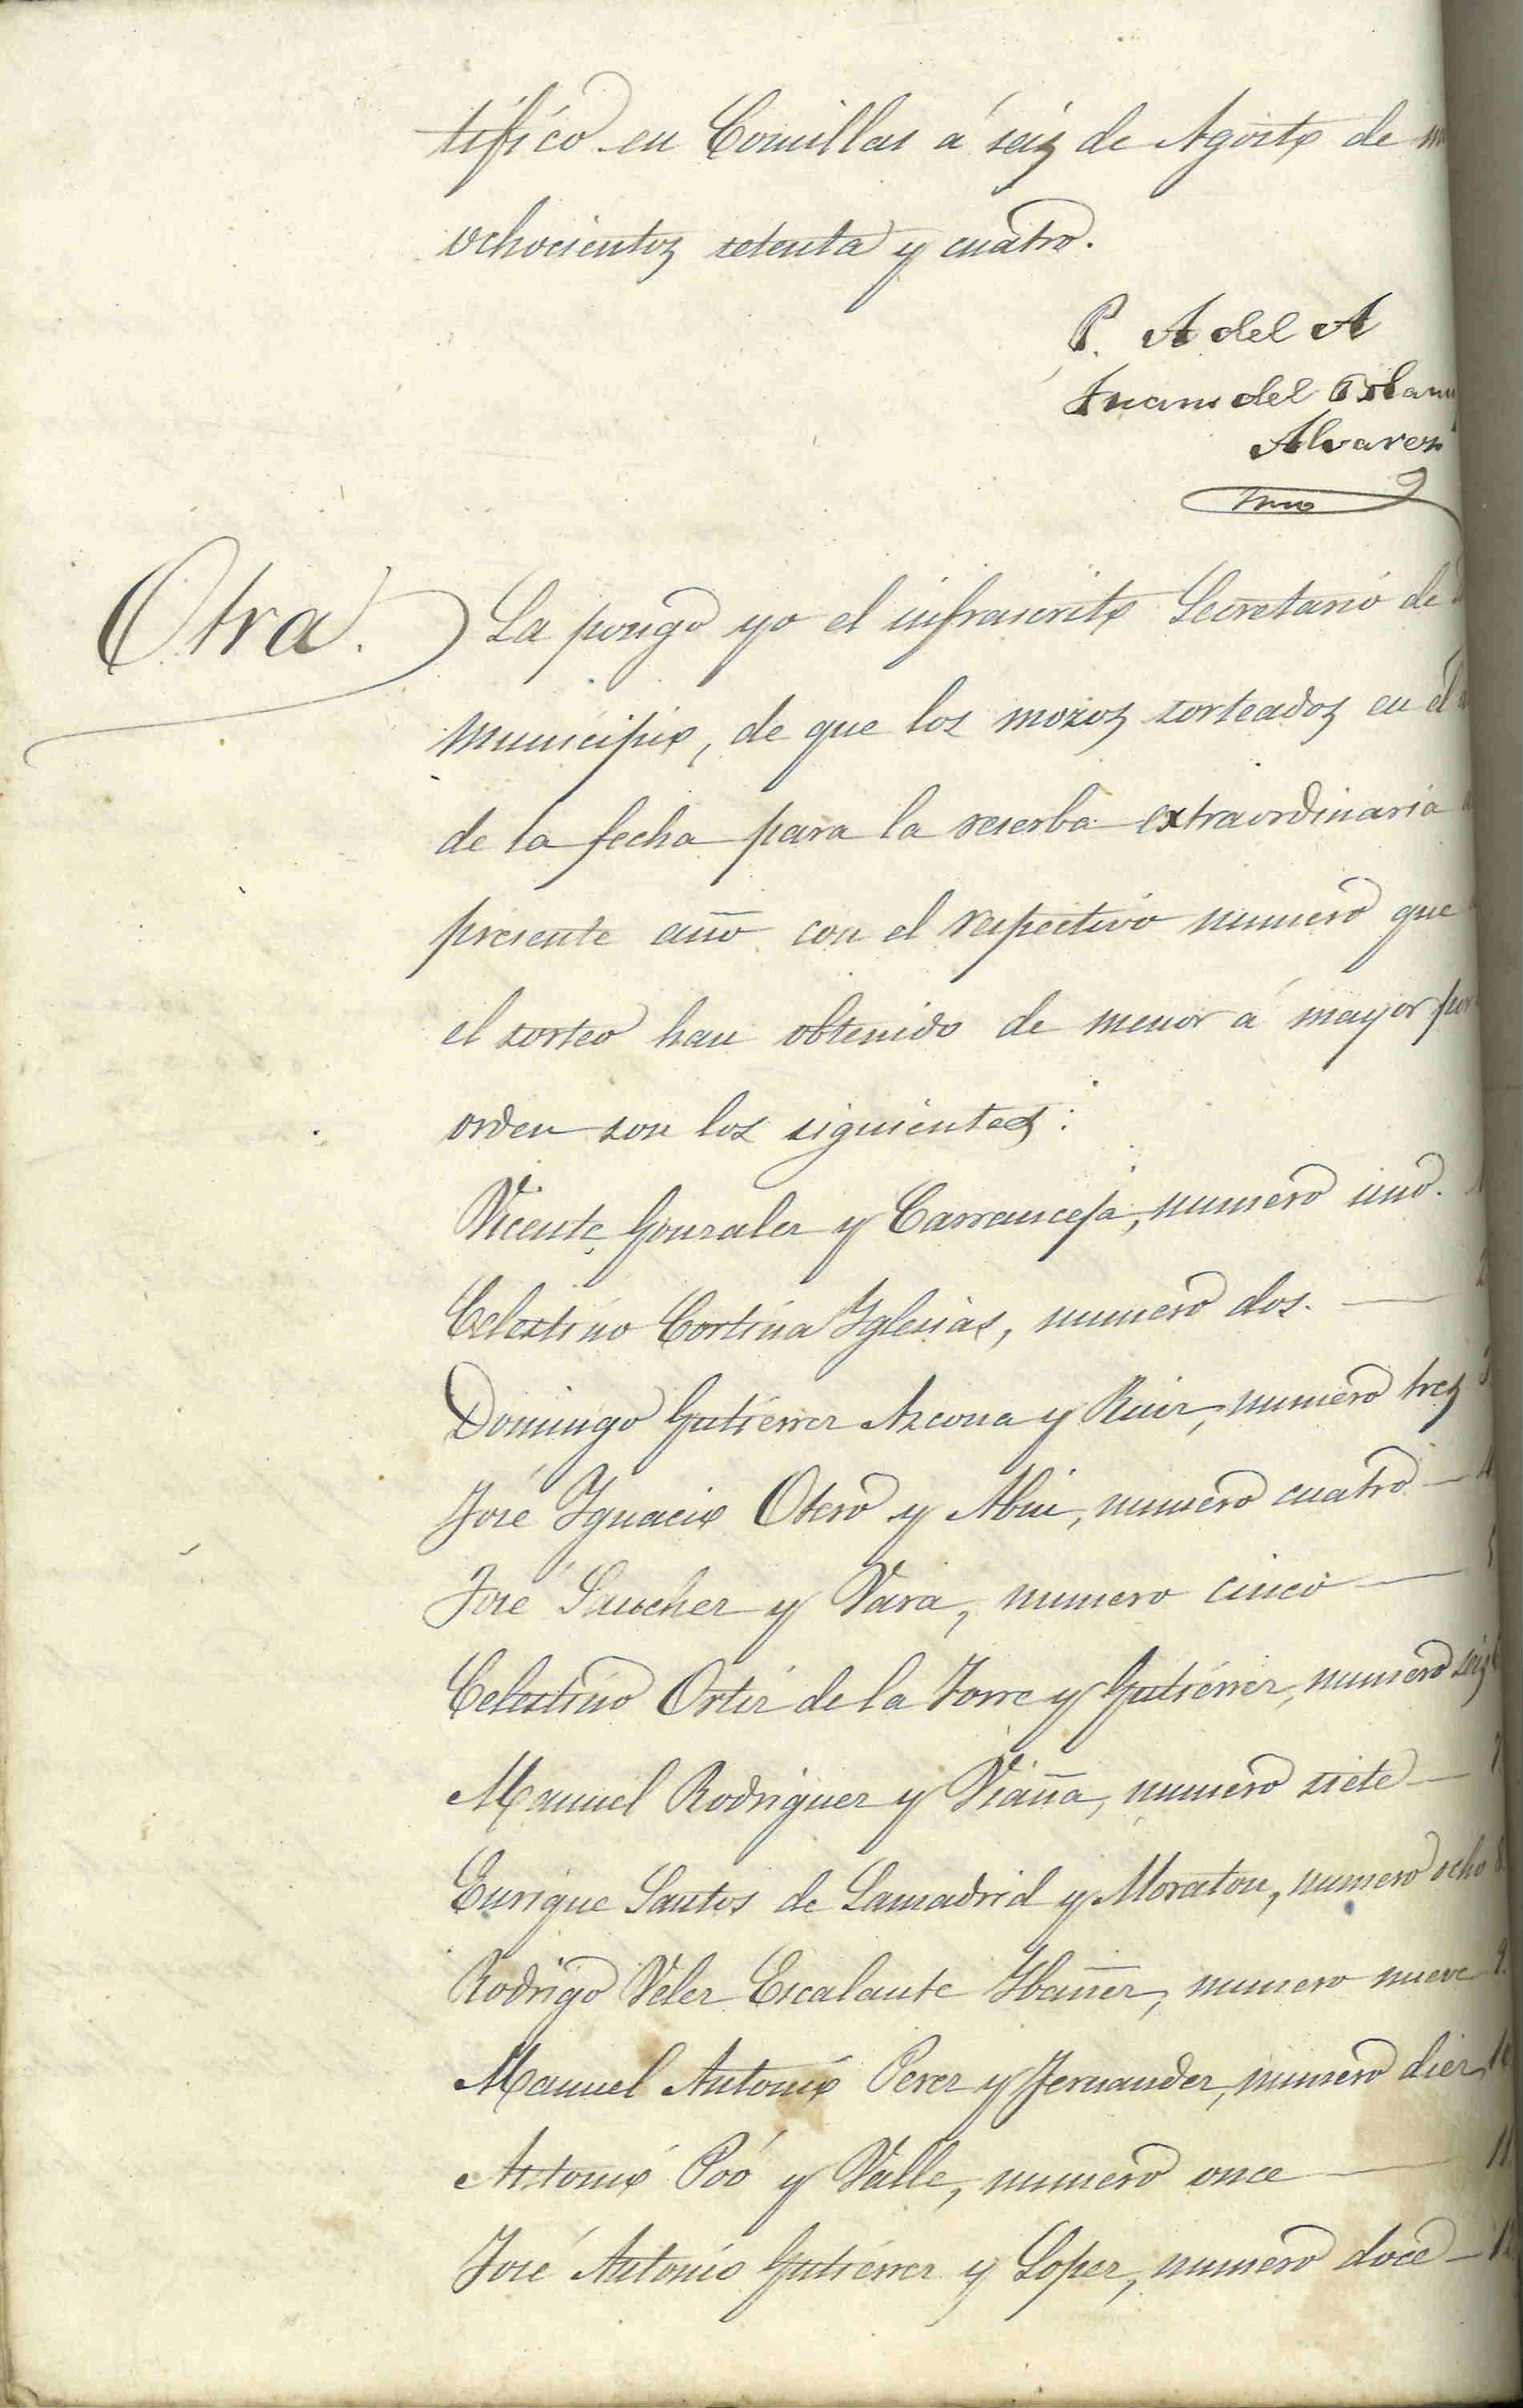 tifico en Comillas á seis de Agosto de
ochocientos setenta y cuatro.
P. A del A
Juan del
Alvarez
Otra. La pongo yo el infrascrito Secretario de
Municipio, de que los mozos sorteados en el
de la fecha para la reserba extraordinaria
presente año con el respectivo numero que
el sorteo han obtenido de menor á mayor por
orden son los siguientes:
Vicente Gonzalez y Carranceja, numero uno. 1
Celestino Cortina Yglesias, numero dos. — 2
Domingo Gutiérrez Azcona y Ruiz, numero tres 3
José Ygnacio Otero y Abin, numero cuatro — 4
José Sanchez y Vara, numero cinco — 5
Celestino Ortiz de la Torre y Gutiérrez, numero seis 6
Manuel Rodriguez y Viaña, numero siete — 7.
Enrique Santos de Lamadrid y Moraton, numero ocho 8.
Rodrigo Velez Escalante Ybañez, numero nueve 9.
Manuel Antonio Perez y Fernandez, numero diez 10
Antonio Póo y Valle, numero once — 11.
José Antonio Gutiérrez y Lopez, numero doce — 12